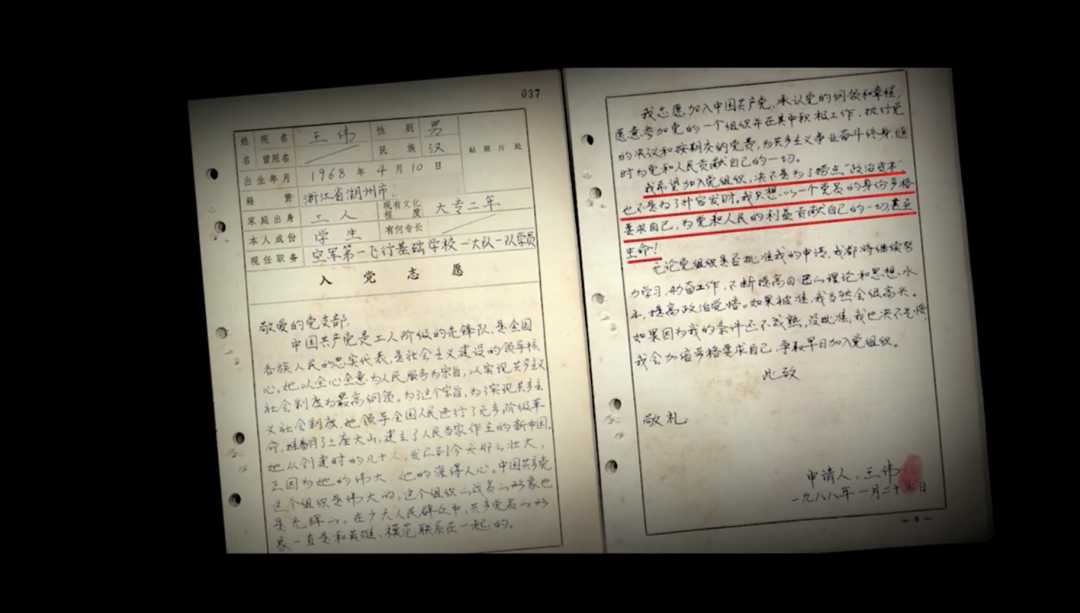 037
姓名 现名 王伟 性别 男
曾用名 民族 汉 贴照片处
出生年月 1968年4月10日
籍贯 浙江省湖州市
家庭出身 工人 现有文化程度 大专二年
本人成份 学生 有何专长
现任职务 空军第一飞行基础学校一大队一队学员
入党志愿
敬爱的党支部,
中国共产党是工人阶级的先锋队,是全国
各族人民的忠实代表,是社会主义建设的领导核
心。她以全心全意为人民服务为宗旨,以实现共产主义
社会制度为最高纲领。为了这个宗旨,为了实现共产主
义社会制度,她领导全国人民进行了无产阶级革
命,推翻了三座大山,建立了人民当家作主的新中国。
她从创建时的几十人,发展到今天那么壮大,
正因为她的伟大,她的深得人心。中国共产党
这个组织是伟大的,这个组织的成员的形象也
是光辉的。在广大人民群众中,共产党员的形
象一直是和英雄、模范联系在一起的。
我志愿加入中国共产党,承认党的纲领和章程,
愿意参加党的一个组织并在其中积极工作,执行党
的决议和按期交纳党费,为共产主义事业奋斗终身,随
时为党和人民贡献自己的一切。
我希望加入党组织,决不是为了捞点"政治资本"
也不是为了升官发财。我只想以一个党员的身份严格
要求自己,为党和人民的利益贡献自己的一切甚至
生命!
无论党组织是否批准我的申请,我都将继续努
力学习,勤奋工作,不断提高自己的理论和思想水
平,提高政治觉悟。如果被准,我当然会很高兴。
如果因为我的条件还不成熟,没批准,我也决不气馁,
我会加倍严格要求自己,争取早日加入党组织。
此致
敬礼
申请人:王伟
一九八八年一月二十 日